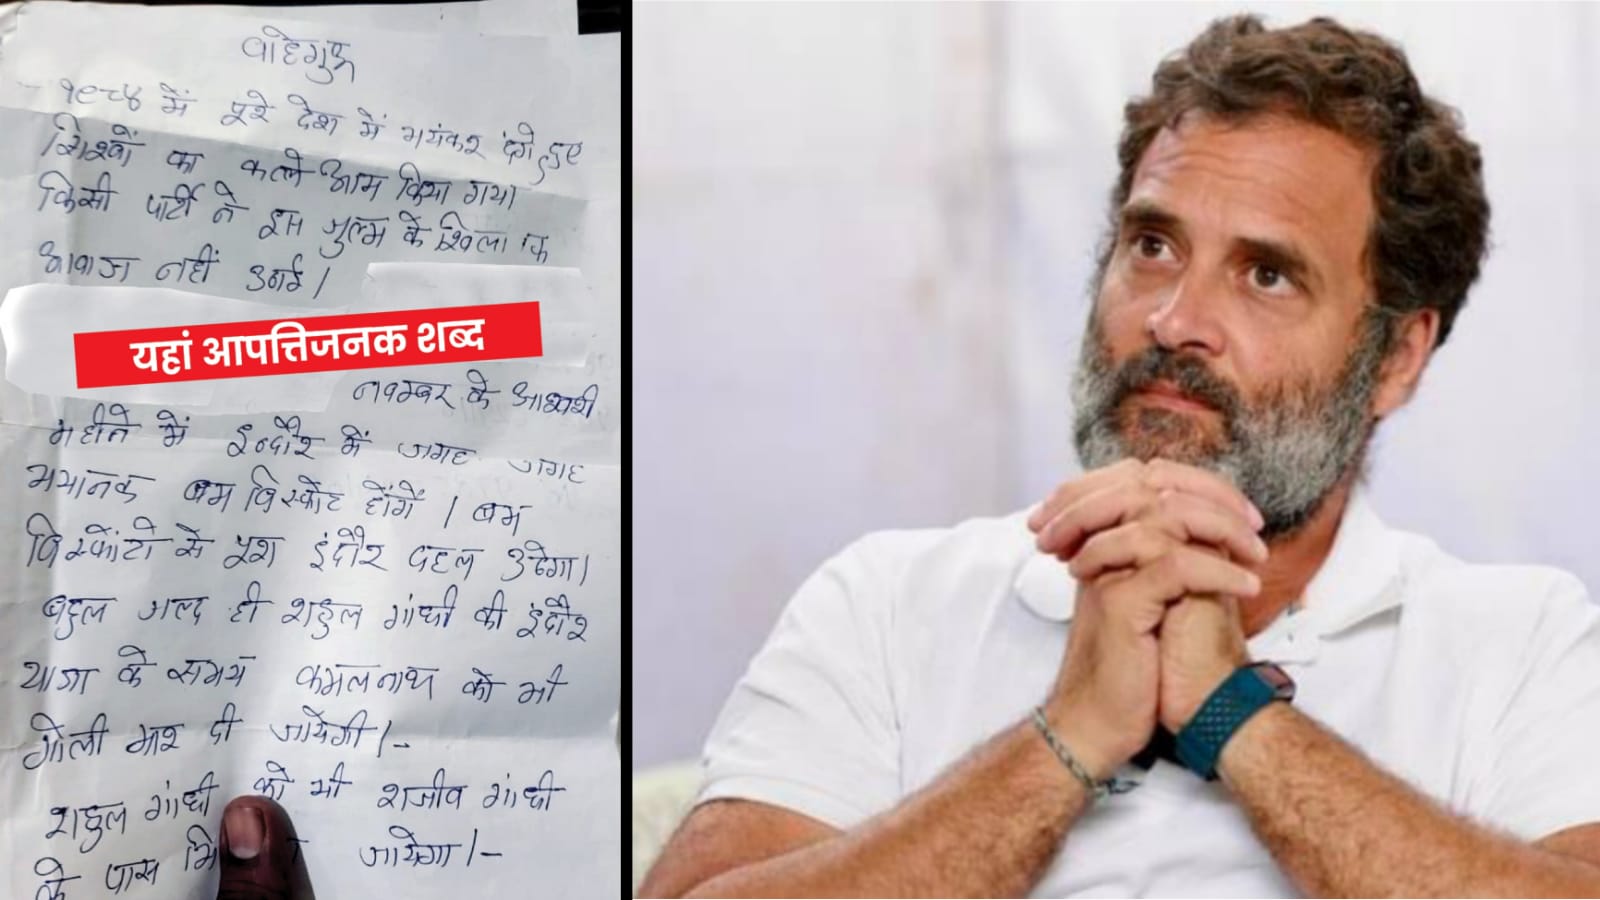 वाहेगुरू
१९८४ में पूरे देश में भयंकर दंगे हुए
सिक्खों का कत्ले आम किया गया
किसी पार्टी ने इस जुल्म के खिलाफ
आवाज नहीं उठाई।
यहां आपत्तिजनक शब्द
नवम्बर के आखरी
महीने में इन्दौर में जगह जगह
भयानक बम विस्फोट होंगें। बम
विस्फोंटो से पूरा इंदौर दहल उठेगा।
बहुत जल्द ही राहुल गांधी की इंदौर
यात्रा के समय कमलनाथ को भी
गोली मार दी जायेगी।-
राहुल गांधी को भी राजीव गांधी
के पास जायेगा।-